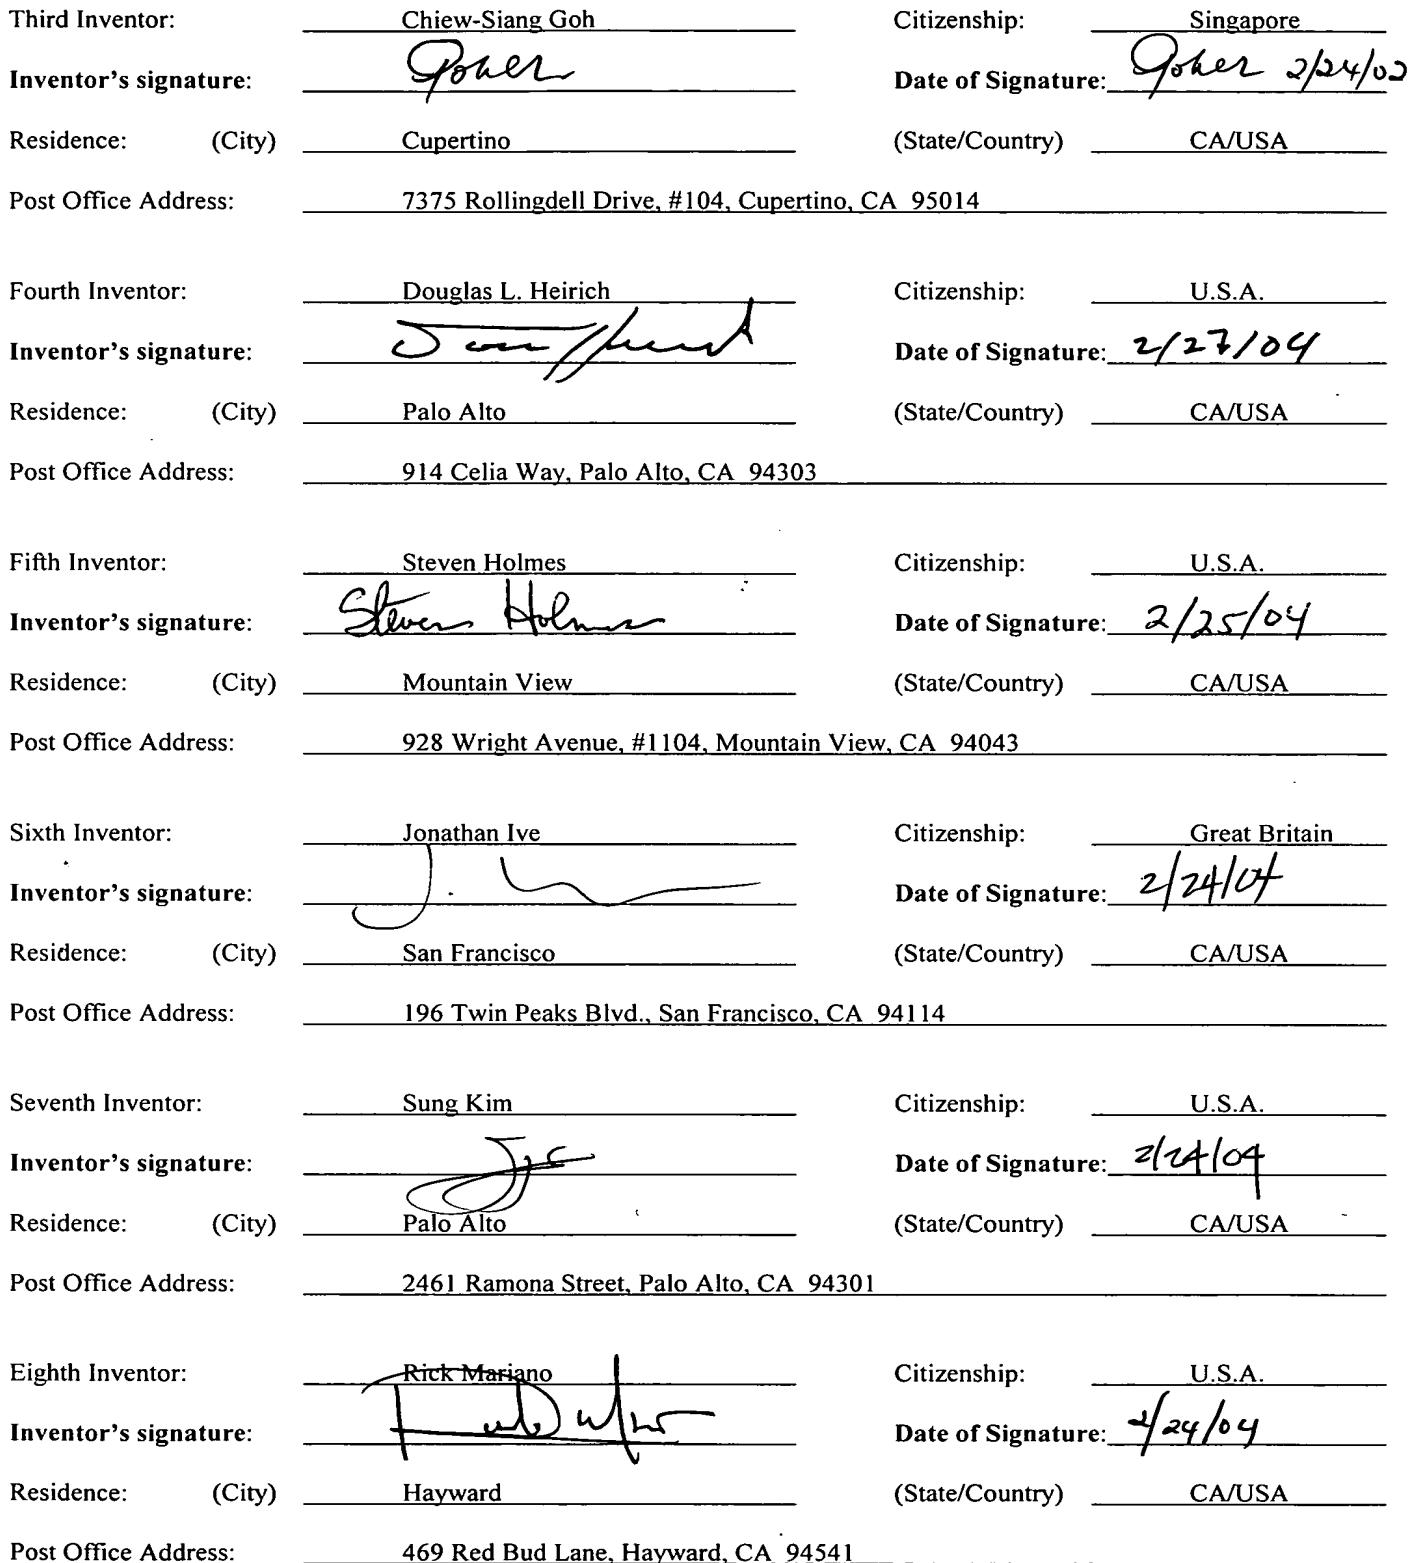 Third Inventor: Chiew-Siang Goh Citizenship: Singapore
Inventor's signature: Date of Signature: 2/24/02
Residence: (City) Cupertino (State/Country) CA/USA
Post Office Address: 7375 Rollingdell Drive, #104, Cupertino, CA 95014
Fourth Inventor: Douglas L. Heirich Citizenship: U.S.A.
Inventor's signature: Date of Signature: 2/27/04
Residence: (City) Palo Alto (State/Country) CA/USA
Post Office Address: 914 Celia Way, Palo Alto, CA 94303
Fifth Inventor: Steven Holmes Citizenship: U.S.A.
Inventor's signature: Steven Holmes Date of Signature: 2/25/04
Residence: (City) Mountain View (State/Country) CA/USA
Post Office Address: 928 Wright Avenue, #1104, Mountain View, CA 94043
Sixth Inventor: Jonathan Ive Citizenship: Great Britain
Inventor's signature: Date of Signature: 2/24/04
Residence: (City) San Francisco (State/Country) CA/USA
Post Office Address: 196 Twin Peaks Blvd., San Francisco, CA 94114
Seventh Inventor: Sung Kim Citizenship: U.S.A.
Inventor's signature: Date of Signature: 2/24/04
Residence: (City) Palo Alto (State/Country) CA/USA
Post Office Address: 2461 Ramona Street, Palo Alto, CA 94301
Eighth Inventor: Rick Mariano Citizenship: U.S.A.
Inventor's signature: Date of Signature: 2/24/04
Residence: (City) Hayward (State/Country) CA/USA
Post Office Address: 469 Red Bud Lane, Hayward, CA 94541